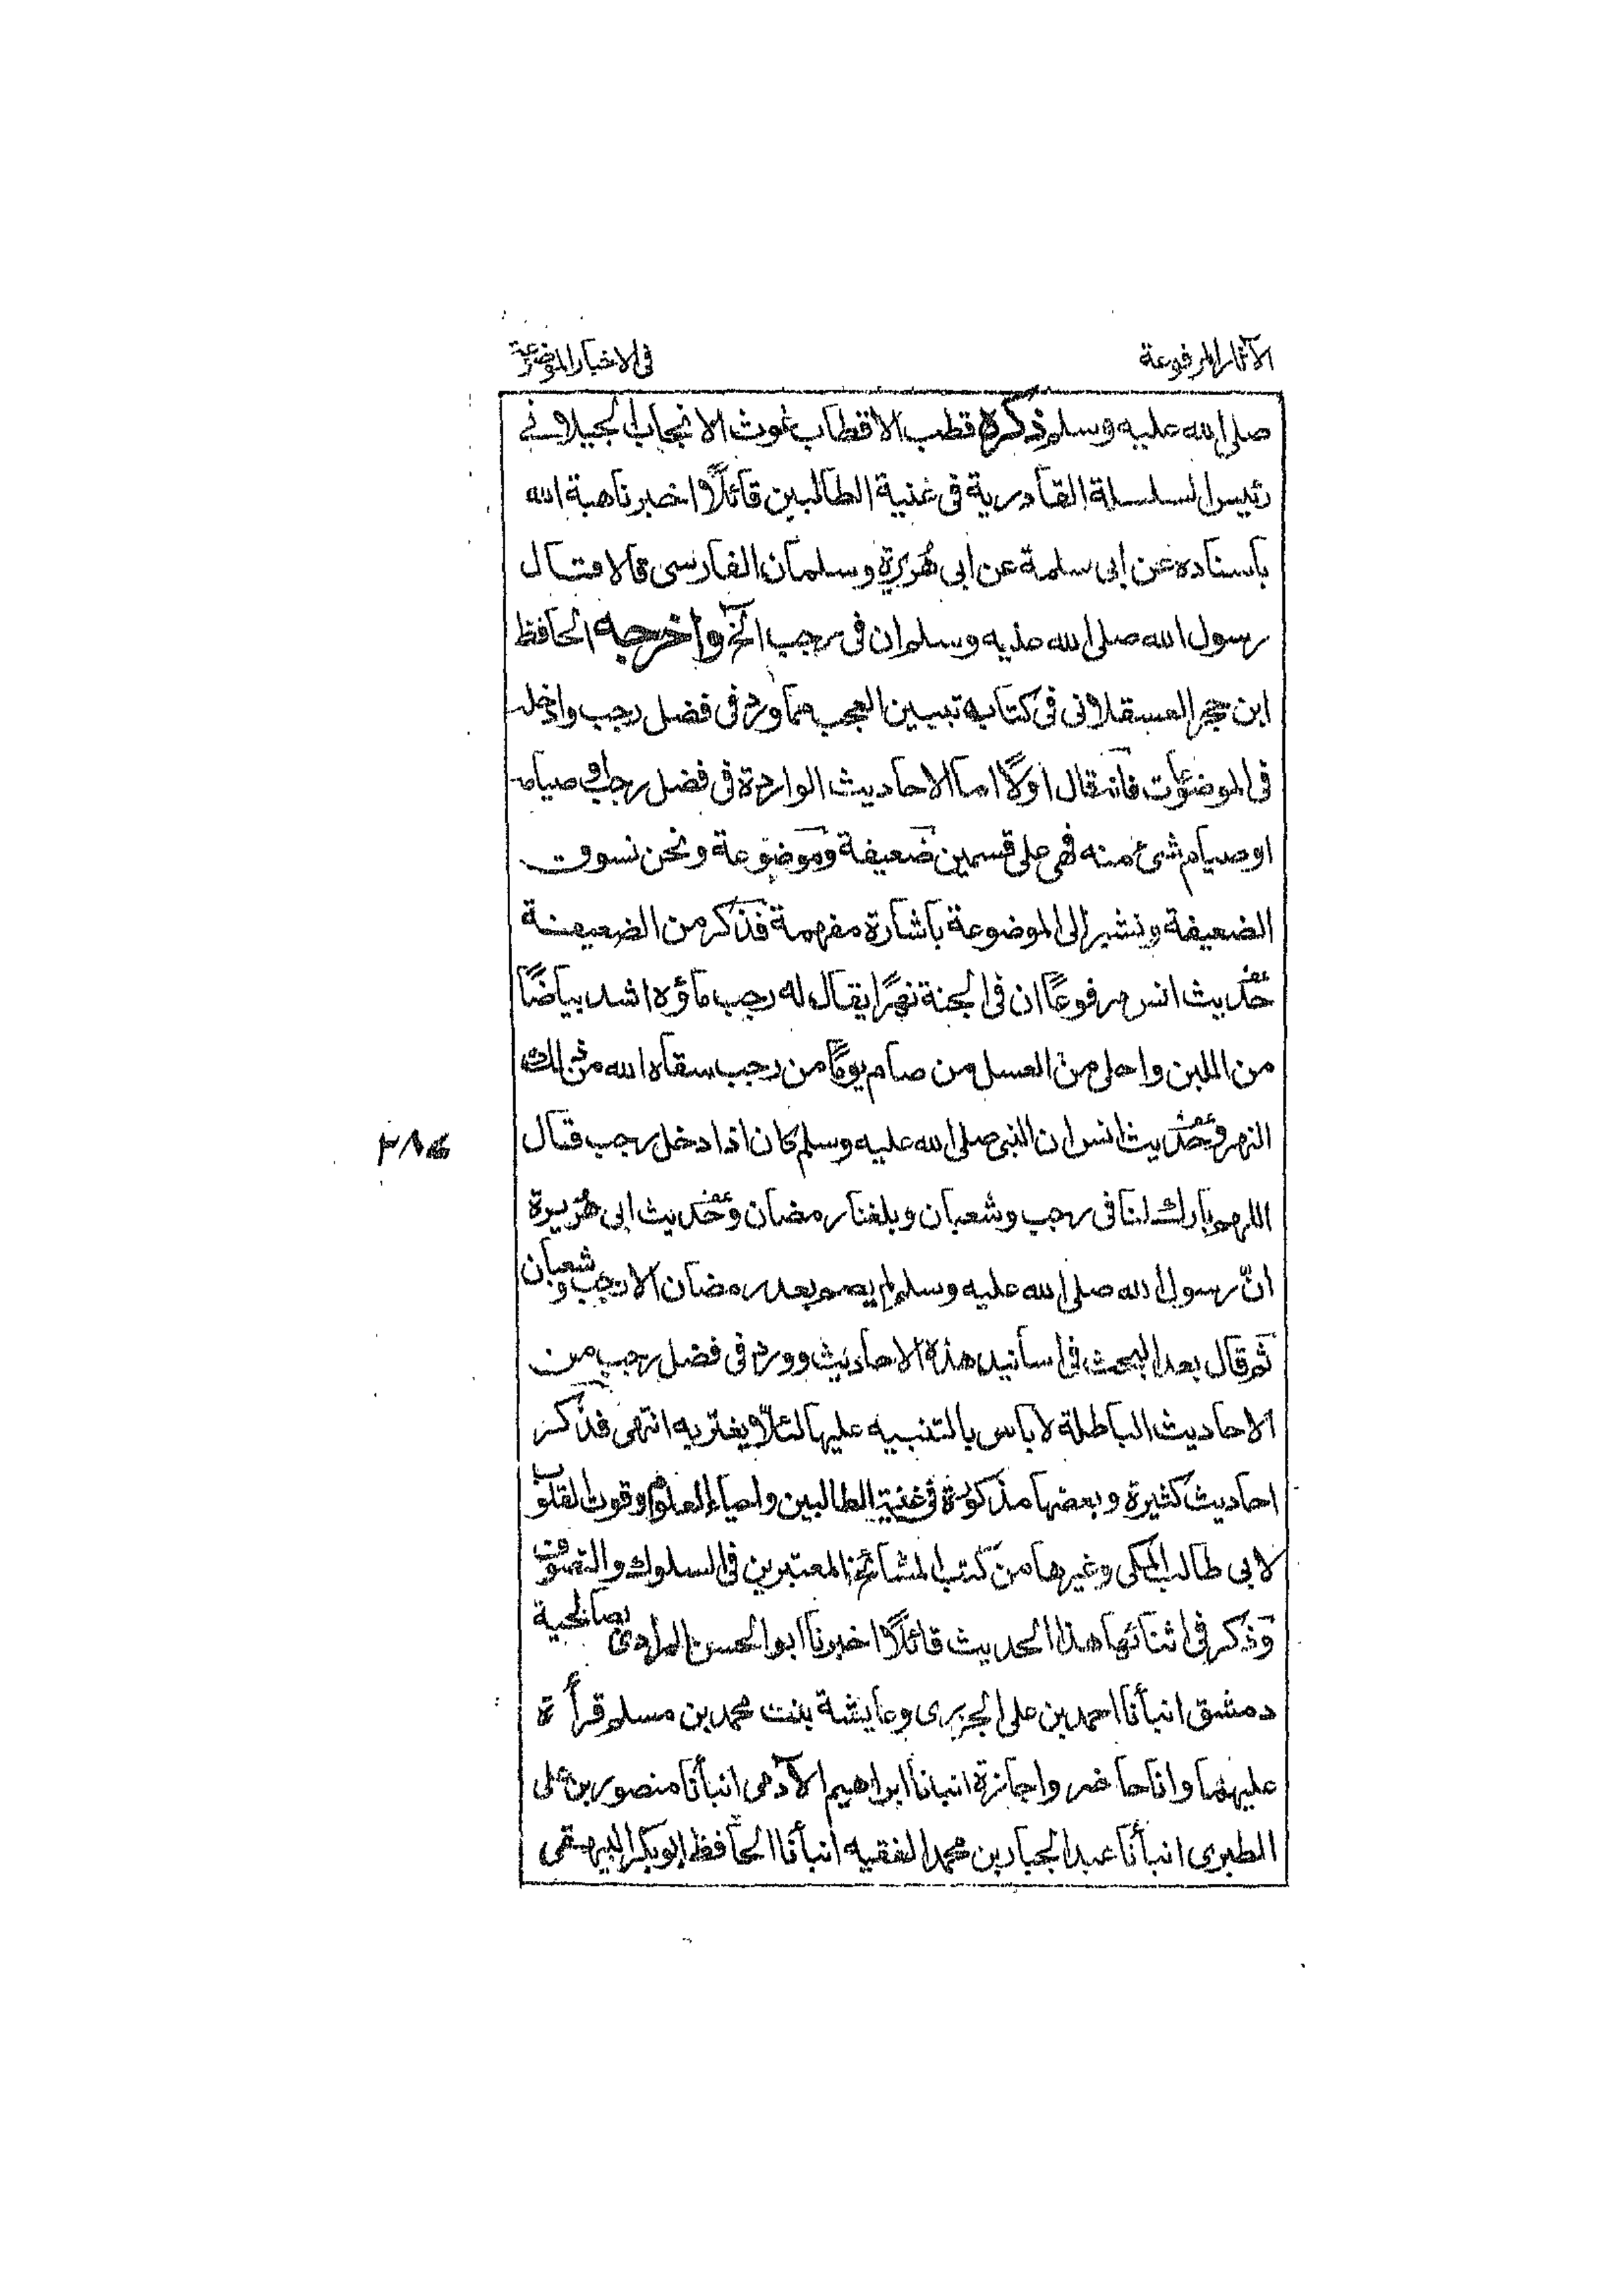 الآثار المرفوعة
فى الاخبار الموضوعة
صلى الله عليه وسلم ذكره قطب الاقطاب غوث الانجاب الجيلانى
رئيس السلسلة القادرية فى غنية الطالبين قائلًا اخبرنا هبة الله
باسناده عن ابى سلمة عن ابى هُرَيرة وسلمان الفارسى قالا قال
رسول الله صلى الله عليه وسلم ان فى رجب الخ واخرجه الحافظ
ابن حجر العسقلانى فى كتابه تبيين العجب مما ورد فى فضل رجب وادخله
فى الموضوعات فانه قال اولًا اما الاحاديث الواردة فى فضل رجب او صيامه
او صيام شئ منه فهى على قسمين ضعيفة وموضوعة ونحن نسوق
الضعيفة ونشير الى الموضوعة باشارة مفهمة فذكر من الضعيفة
حديث انس مرفوعًا ان فى الجنة نهرًا يقال له رجب ماؤه اشد بياضًا
من اللبن واحلى من العسل من صام يومًا من رجب سقاه الله من ذلك
النهر وحديث انس ان النبى صلى الله عليه وسلم كان اذا دخل رجب قال
اللهم بارك لنا فى رجب وشعبان وبلغنا رمضان وحديث ابى هُرَيرة
انّ رسول الله صلى الله عليه وسلم لم يصم بعد رمضان الا رجب وشعبان
ثم قال بعد البحث فى اسانيد هذه الاحاديث وورد فى فضل رجب من
الاحاديث الباطلة لا باس بالتنبيه عليها لئلّا يغتر به انتهى فذكر
احاديث كثيرة وبعضها مذكورة فى غنية الطالبين واحياء العلوم وقوت القلوب
لابى طالب المكى وغيرها من كتب المشائخ المعتبرين فى السلوك والتصوف
وذكر فى اثنائها هذا الحديث قائلًا اخبرنا ابو الحسن المرادى بصالحية
دمشق انبأنا احمد بن على الجزرى وعايشة بنت محمد بن مسلم قرأة
عليهما وانا حاضر واجازة انبانا ابراهيم الآدمى انبأنا منصور بن على
الطبرى انبأنا عبد الجبار بن محمد الفقيه انبأنا الحافظ ابو بكر البيهقى